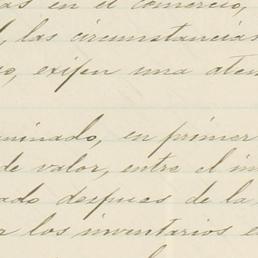 as en el comercio,
, las circunstancias
o, exijen una aten
minado, en primer
de valor, entre el in
ado despues de la
r los inventarios e